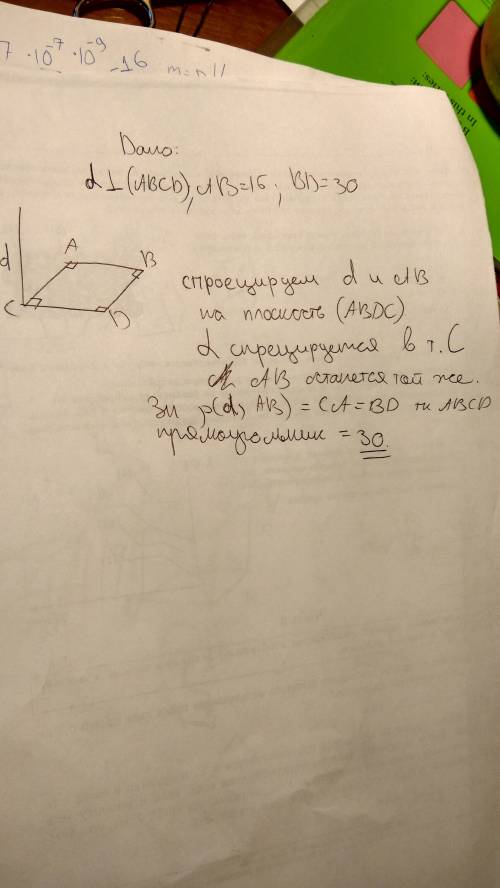 7 · 10⁻⁷ · 10⁻⁹ -16 m=n11
In this
Дано:
d ⊥ (ABCD), AB=16; BD=30
d
A
B
C
D
спроецируем d и AB
на плоскость (ABDC)
d спрецируется в т. C
AB останется той же.
Зн ρ(d, AB) = CA = BD тк ABCD
прямоугольник = 30.